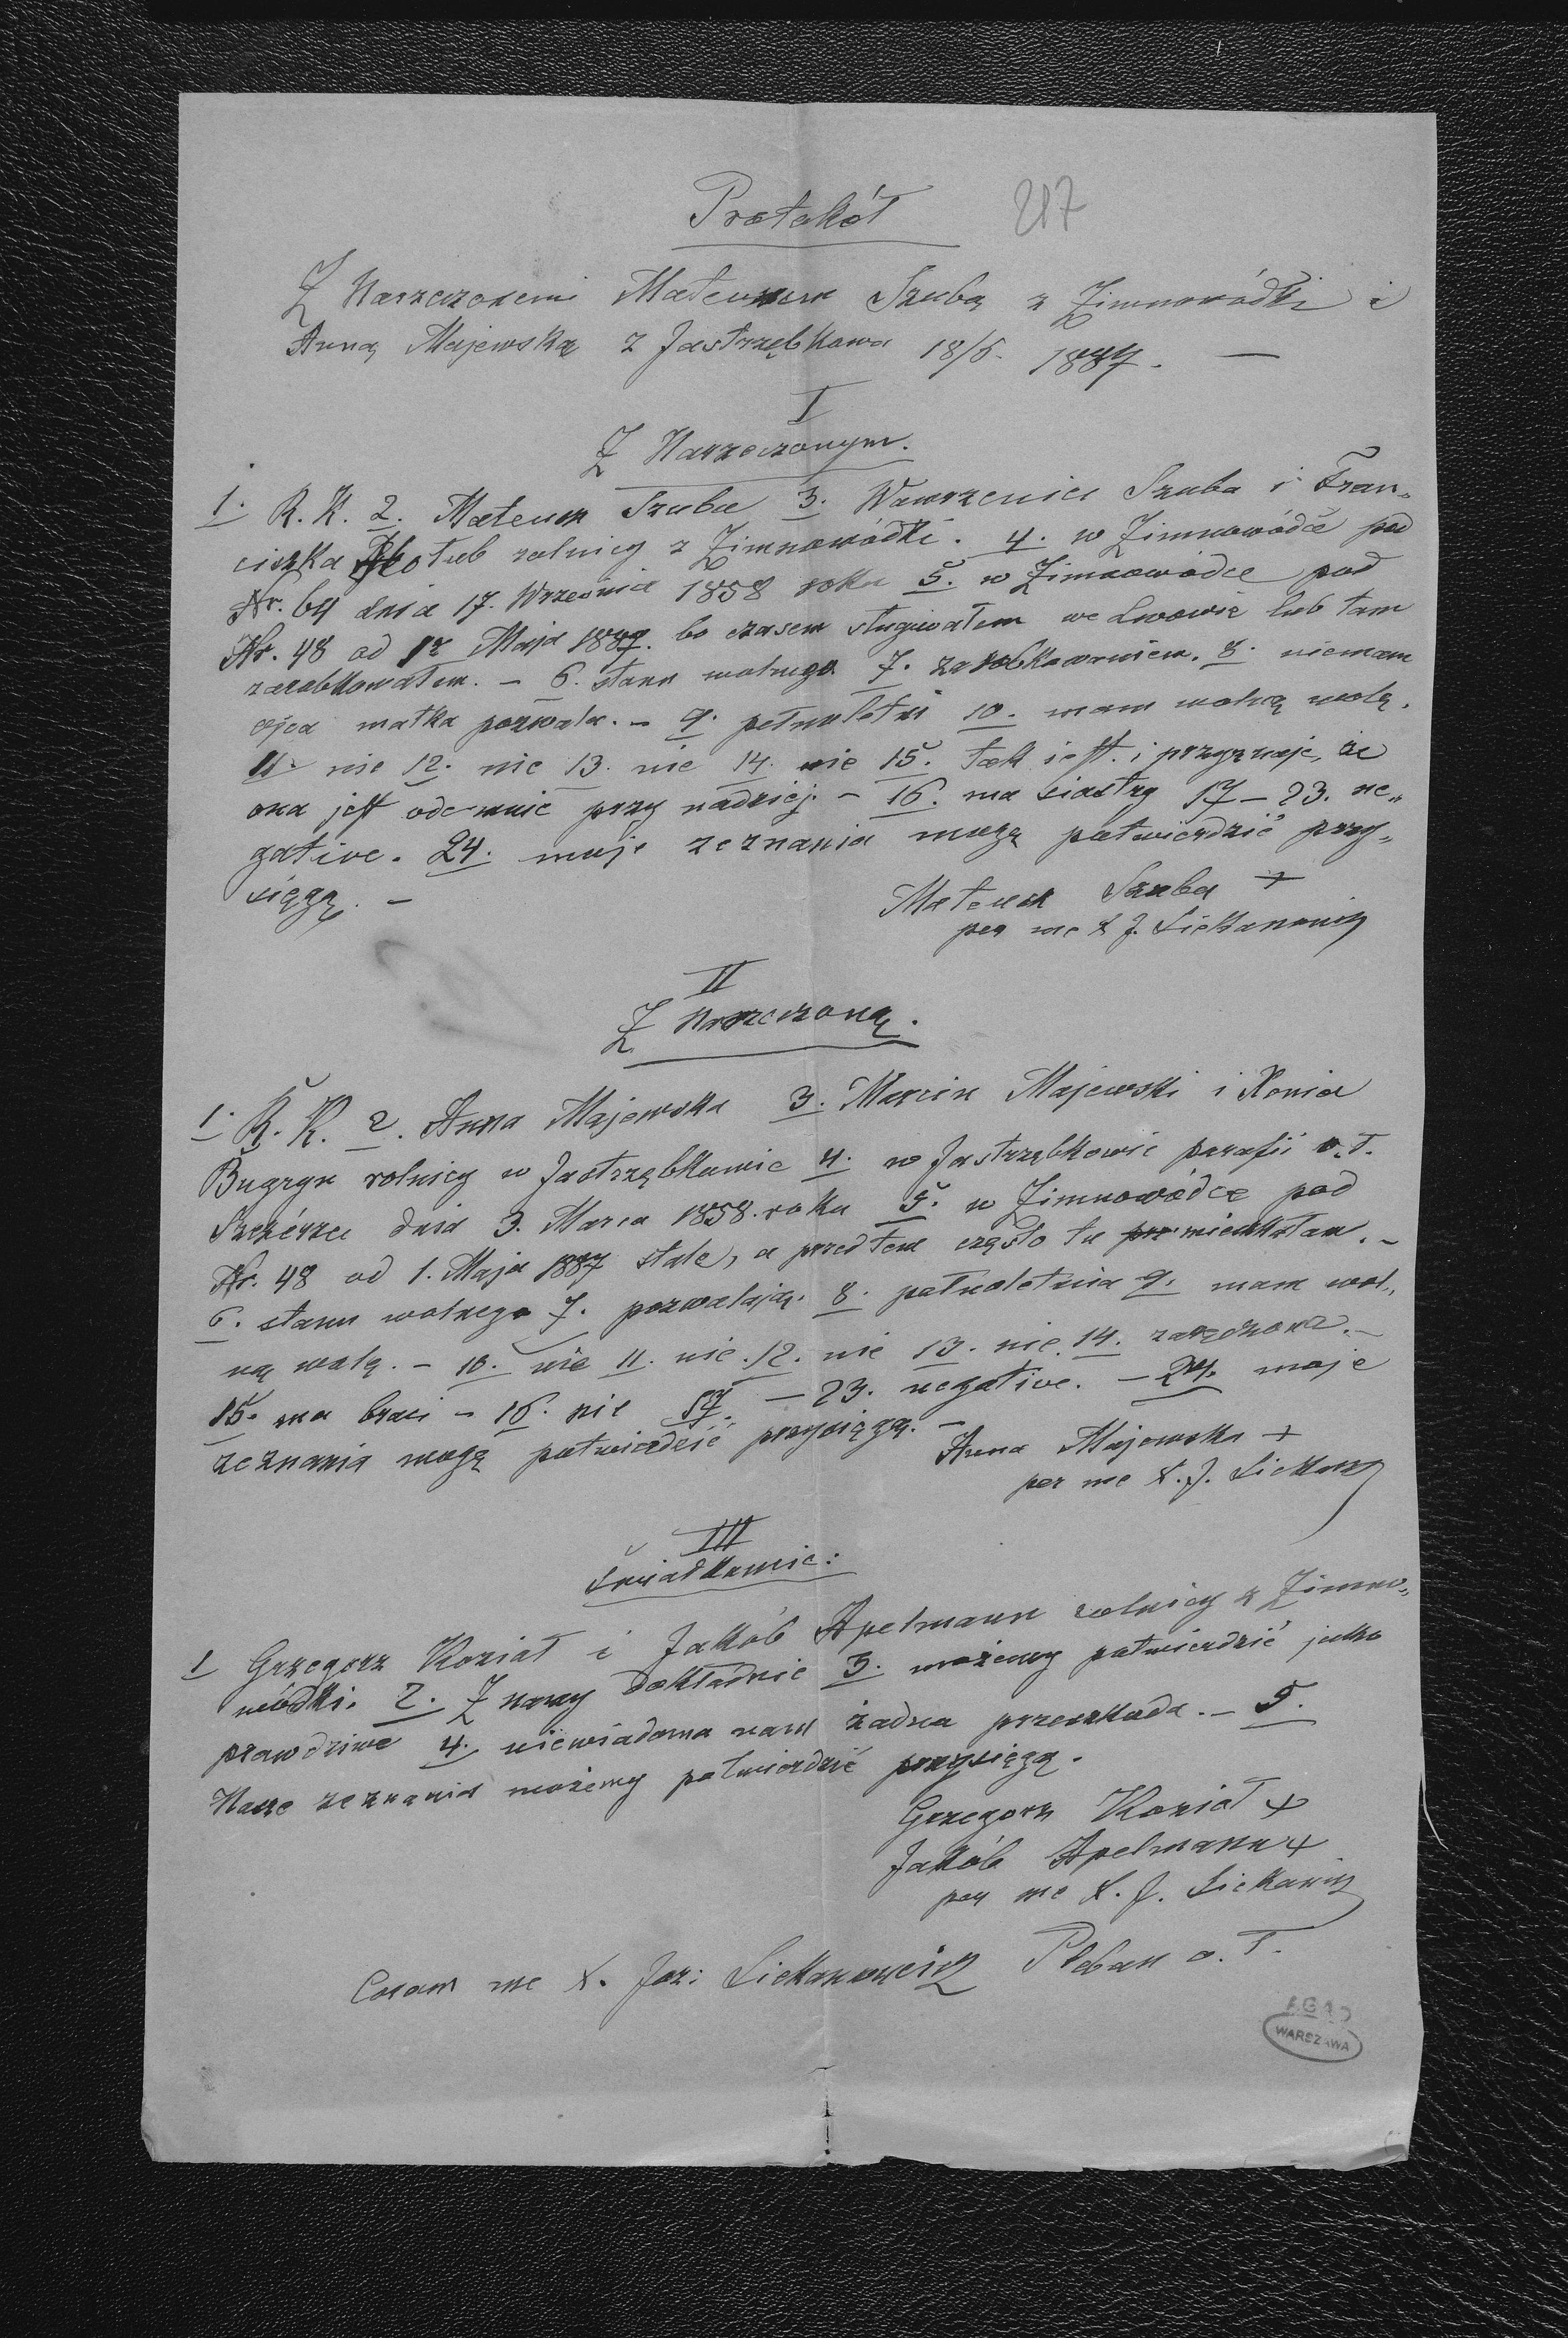 Protokół 217
Z Narzeczonemi Mateuszem Szubą z Zimnowódki i
Anną Majewską z Jastrzębkowa 18/5. 1887. —
I
Z Narzeczonym.
1. R. K. 2. Mateusz Szuba 3. Wawrzeniec Szuba i Fran„
ciszka rolnicy z Zimnowódki. 4. w Zimnowódce pod
Nr. 64 dnia 17. Września 1858 roku 5. w Zimnowódce pod
Nr. 48 od 12 Maja 1887. bo czasem sługiwałem we Lwowie lub tam
zarobkowałem. – 6. stanu wolnego 7. zarobkowaniem. 8. niemam
ojca matka pozwala. – 9. pełnoletni 10. mam wolną wolę.
11. nie 12. nie 13. nie 14. nie 15. tak jest. i przyznaję, że
ona jest odemnie przy nadziej. – 16. ma siostry 17 – 23. ne„
gative. 24. moje zeznania mogę potwierdzić przy„
sięgą. –
Mateusz Szuba +
per me X J. Siekanowicz
II
Z Narzeczoną.
1. R. K. 2. Anna Majewska 3. Marcin Majewski i Xenia
Bugryn rolnicy w Jastrzębkowie 4. w Jastrzębkowie parafii o. ł.
Szczérzec dnia 3. Marca 1858. roku 5. w Zimnowódce pod
Nr. 48 od 1. Maja 1887 stale, a przedtem często tu mieszkałam. –
6. stanu wolnego 7. pozwalają. 8. pełnoletnia 9. mam wol„
ną wolę. – 10. nie 11. nie. 12. nie 13. nie. 14. zaręczona. –
15. ma braci – 16. nie 17. – 23. negative. – 24. moje
zeznania mogę potwierdzić przysięgą. –
Anna Majewska +
per me X. J. Siekanow
III
Świadkowie:
1 Grzegorz Kozioł i Jakób Apelmann rolnicy z Zimno„
wódki. 2. Znamy dokładnie 3. możemy potwierdzić jako
prawdziwe 4. niewiadoma nam żadna przeszkoda. – 5.
Nasze zeznania możemy potwierdzić przysięgą.
Grzegorz Kozioł +
Jakób Apelmann +
per me X. J. Siekanowicz
Coram me X. Joz: Siekanowicz Pleban o. ł.
AGAD
WARSZAWA